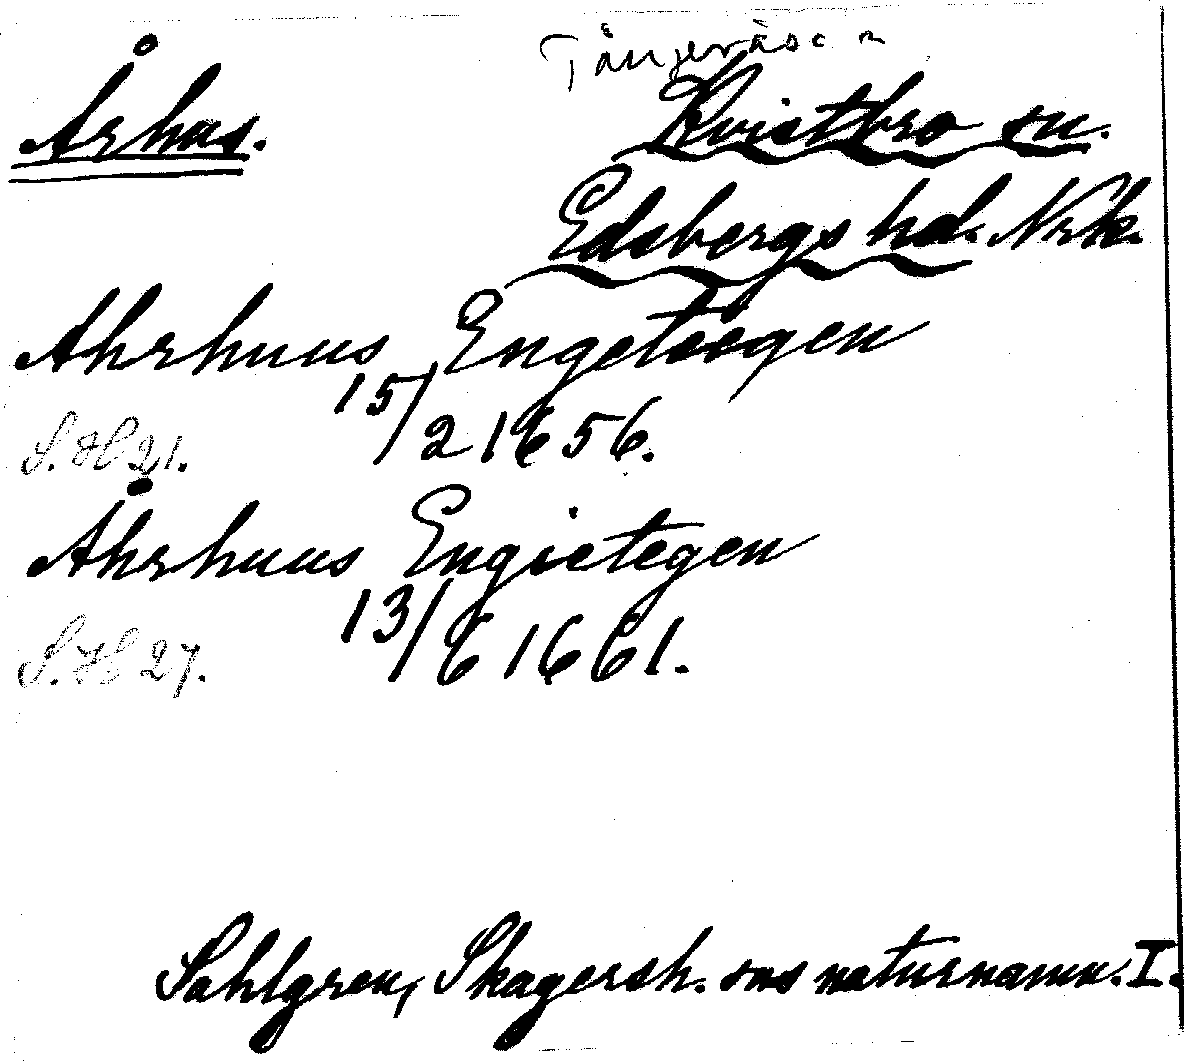 Århus.
Kvistbro sn.
Edsbergs hd. Nrk.
Ahrhuus Engeteegen
15/2 1656.
S. H 21.
Åhrhuus Engietegen
13/6 1661.
S. H 27.
Sahlgren, Skagersh. sns naturnamn. I.